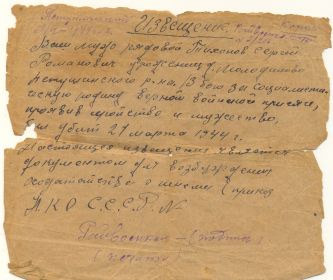 Извещение
Ваш муж рядовой Тихонов Сергей
Романович уроженец д. Молодино
Петушинского р-на. В бою за Социалисти-
ческую родину верный воинской присяге,
проявив геройство и мужество,
был убит 21 марта 1944 г.
Настоящее извещение является
документом для возбуждения
ходатайства о пенсии (приказ
НКО СССР №
Райвоенком — (подпись)
(печать)